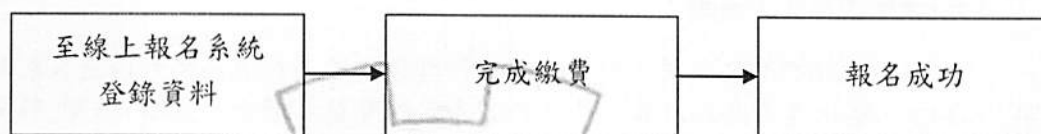 至線上報名系統
登錄資料
完成繳費
報名成功